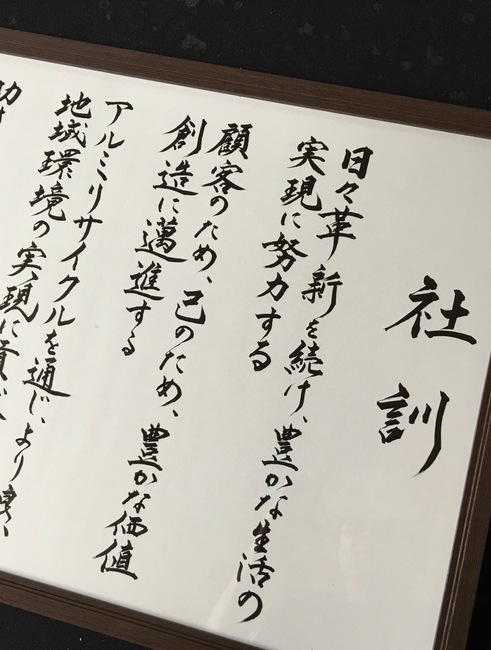 社訓
日々革新を続け、豊かな生活の
実現に努力する
顧客のため、己のため、豊かな価値
創造に邁進する
アルミリサイクルを通じ、より良い
地域環境の実現に貢